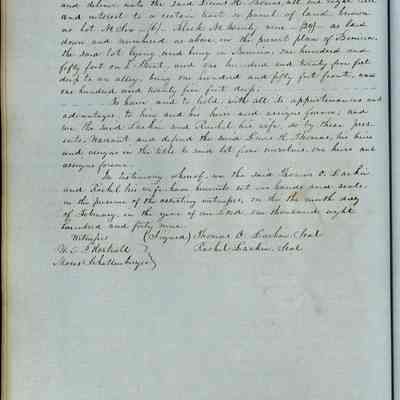 and deliver unto the said Lewis H. Thomas, all our right title
and interest to a certain tract or parcel of land known
as Lot N. Six — (6) — Block N. Twenty nine — (29) — as laid
down and numbered as above, on the present plan of Benicia,
the said lot lying and being in Benicia, one hundred and
fifty feet on L Street, and one hundred and twenty five feet
deep to an alley, being one hundred and fifty feet front, and
one hundred and twenty five feet deep;
To have and to hold, with all its appurtenances and
advantages, to him and his heirs and assigns forever; and
we the said Larkin and Rachel his wife, do by these pres-
ents, Warrant and defend the said Lewis H. Thomas, his heirs
and assigns in the title to said lot from ourselves, our heirs and
assigns forever.
In testimony whereof, we the said Thomas O. Larkin
and Rachel his wife have hereunto set our hands and seals,
in the presence of the attesting witnesses, on this the ninth day
of February, in the year of our Lord one thousand eight
hundred and forty nine.
Witnesses (Signed) Thomas O. Larkin, Seal
W. E. P. Hartnell Rachel Larkin, Seal
Moses Schallenberger